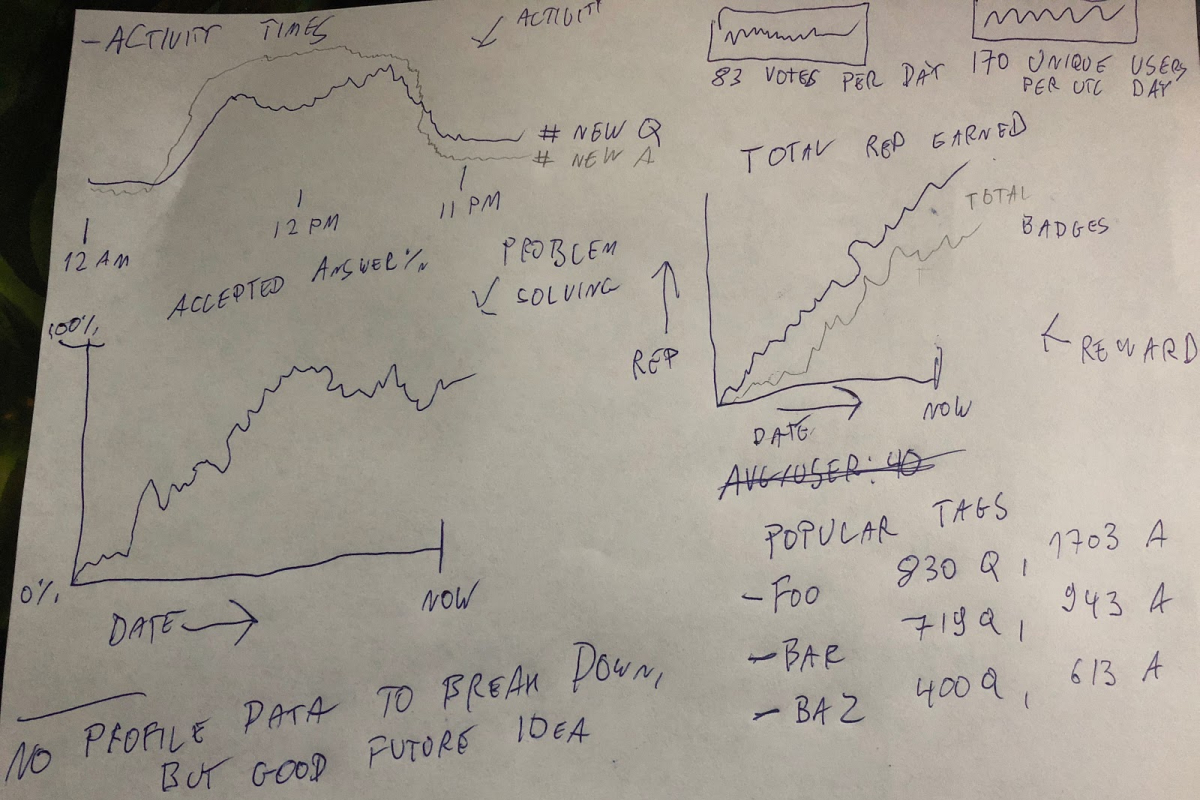 - ACTIVITY TIMES
ACTIVITY
# NEW Q
# NEW A
12 AM
12 PM
11 PM
83 VOTES PER DAY
170 UNIQUE USERS
PER UTC DAY
ACCEPTED ANSWER %
PROBLEM
SOLVING
100%
0%
DATE
NOW
TOTAL REP EARNED
TOTAL
BADGES
REP
REWARD
DATE
NOW
AVG/USER: 40
POPULAR TAGS
- FOO 830 Q, 1703 A
- BAR 719 Q, 943 A
- BAZ 400 Q, 613 A
NO PROFILE DATA TO BREAK DOWN,
BUT GOOD FUTURE IDEA